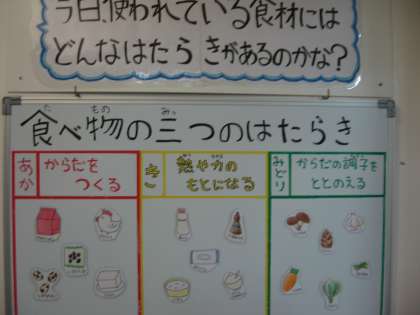 今日、使われている食材には
どんなはたらきがあるのかな?
た もの みっ
食べ物の三つのはたらき
あか
からだを
つくる
きい
熱や力の
もとになる
みどり
からだの調子を
ととのえる